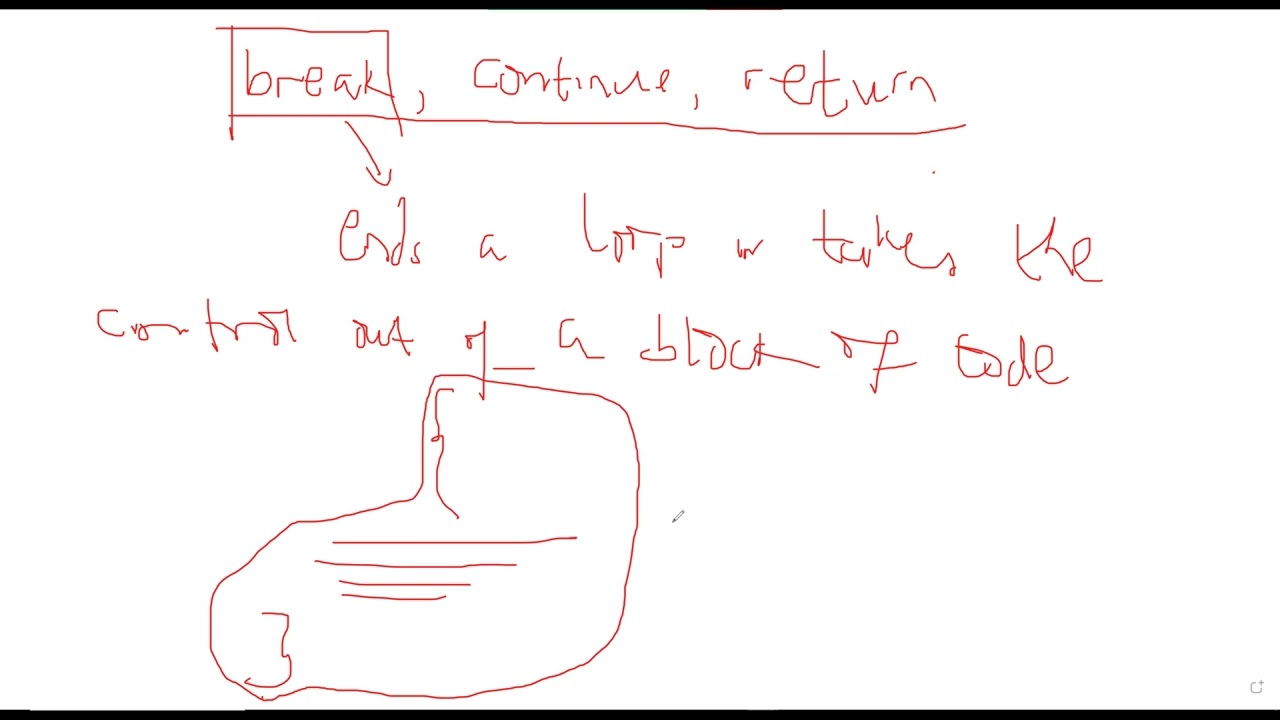 break, continue, return
ends a loop or takes the
control out of a block of code
{
}